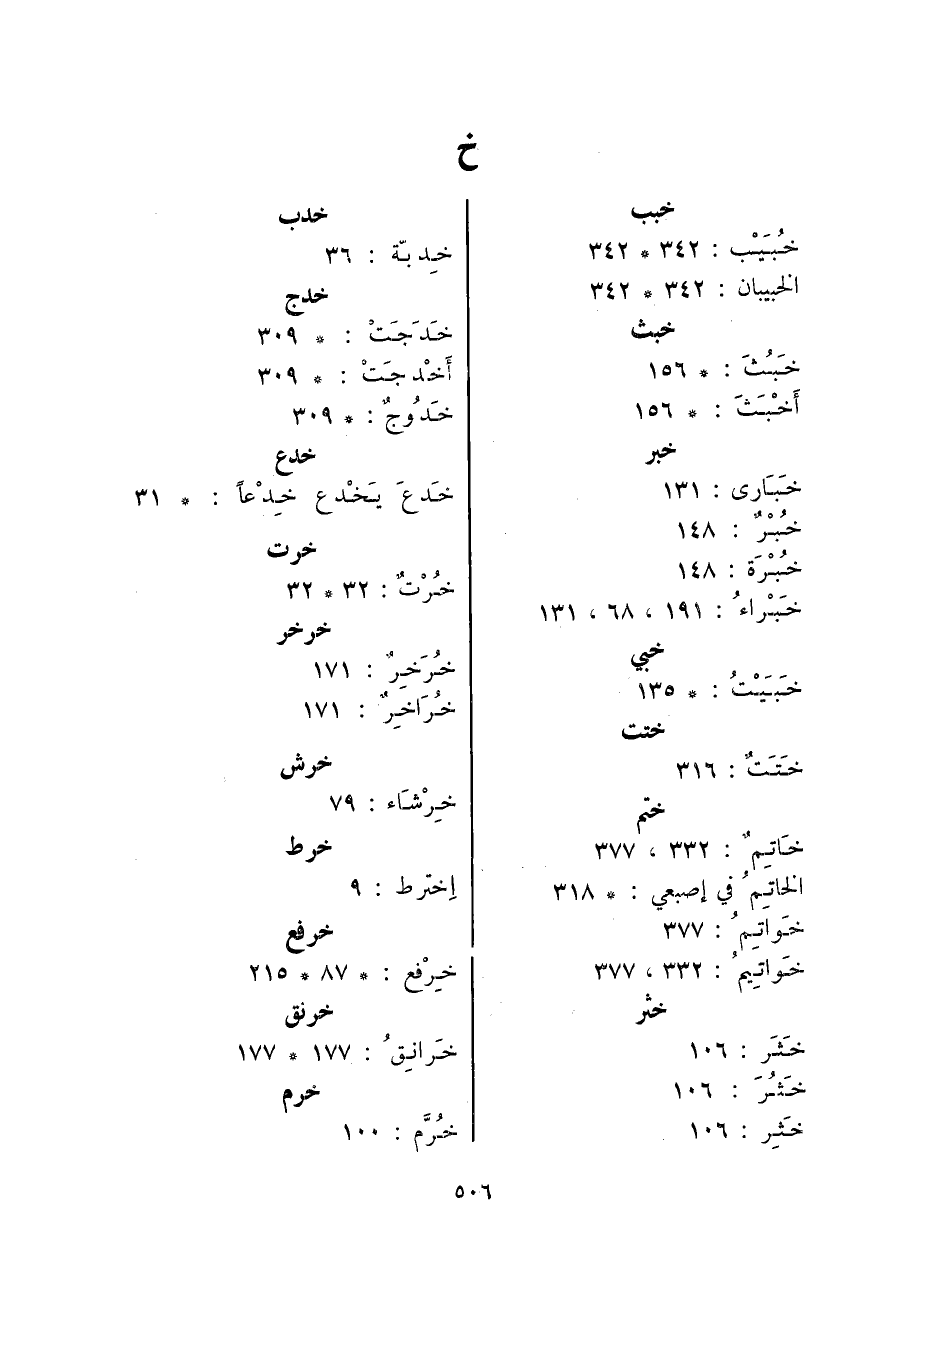 خ
خبب
خُبَيْب : ٣٤٢ * ٣٤٢
الخبيبان : ٣٤٢ * ٣٤٢
خبث
خَبُثَ : * ١٥٦
أَخْبَثَ : * ١٥٦
خبر
خَبَارى : ١٣١
خُبْرٌ : ١٤٨
خُبْرَة : ١٤٨
خَبْراءُ : ١٩١ ، ٦٨ ، ١٣١
خبي
خَبَيْتُ : * ١٣٥
ختت
خَتَتٌ : ٣١٦
ختم
خَاتِمٌ : ٣٣٢ ، ٣٧٧
الخاتِمُ في إصبعي : * ٣١٨
خَواتِمُ : ٣٧٧
خَواتِيمُ : ٣٣٢ ، ٣٧٧
خثر
خَثَرَ : ١٠٦
خَثُرَ : ١٠٦
خَثِر : ١٠٦
خدب
خِدبّة : ٣٦
خدج
خَدَجَتْ : * ٣٠٩
أَخْدجَتْ : * ٣٠٩
خَدُوجٌ : * ٣٠٩
خدع
خَدعَ يَخْدع خِدْعاً : * ٣١
خرت
خُرْتٌ : ٣٢ * ٣٢
خرخر
خُرَخِرٌ : ١٧١
خُرَاخِرٌ : ١٧١
خرش
خِرْشَاء : ٧٩
خرط
إِخترط : ٩
خرفع
خِرْفع : * ٨٧ * ٢١٥
خرنق
خَرانِقُ : ١٧٧ * ١٧٧
خرم
خُرَّم : ١٠٠
٥٠٦